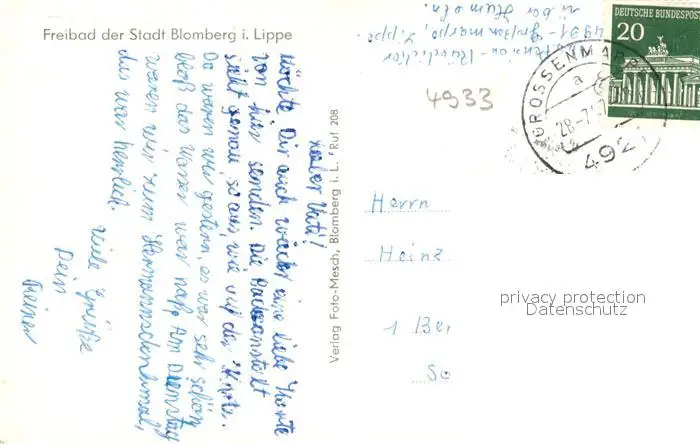 Freibad der Stadt Blomberg i. Lippe
Lieber Vati!
Möchte Dir auch wieder eine liebe Karte
von hier senden. Die Badeanstalt
sieht genau so aus, wie auf der Karte.
Da waren wir gestern, es war sehr schön,
bloß das Wasser war naß. Am Dienstag
waren wir zum Hermannsdenkmal,
das war herrlich.
Viele Grüße
Dein
Reiner
Verlag Foto-Mesch, Blomberg i. L. Ruf 208
Lippe
über Hameln
4933
DEUTSCHE BUNDESPOST
20
GROSSENMARP
a
28.-7.
492
Herrn
Heinz
1 Ber
privacy protection
Datenschutz